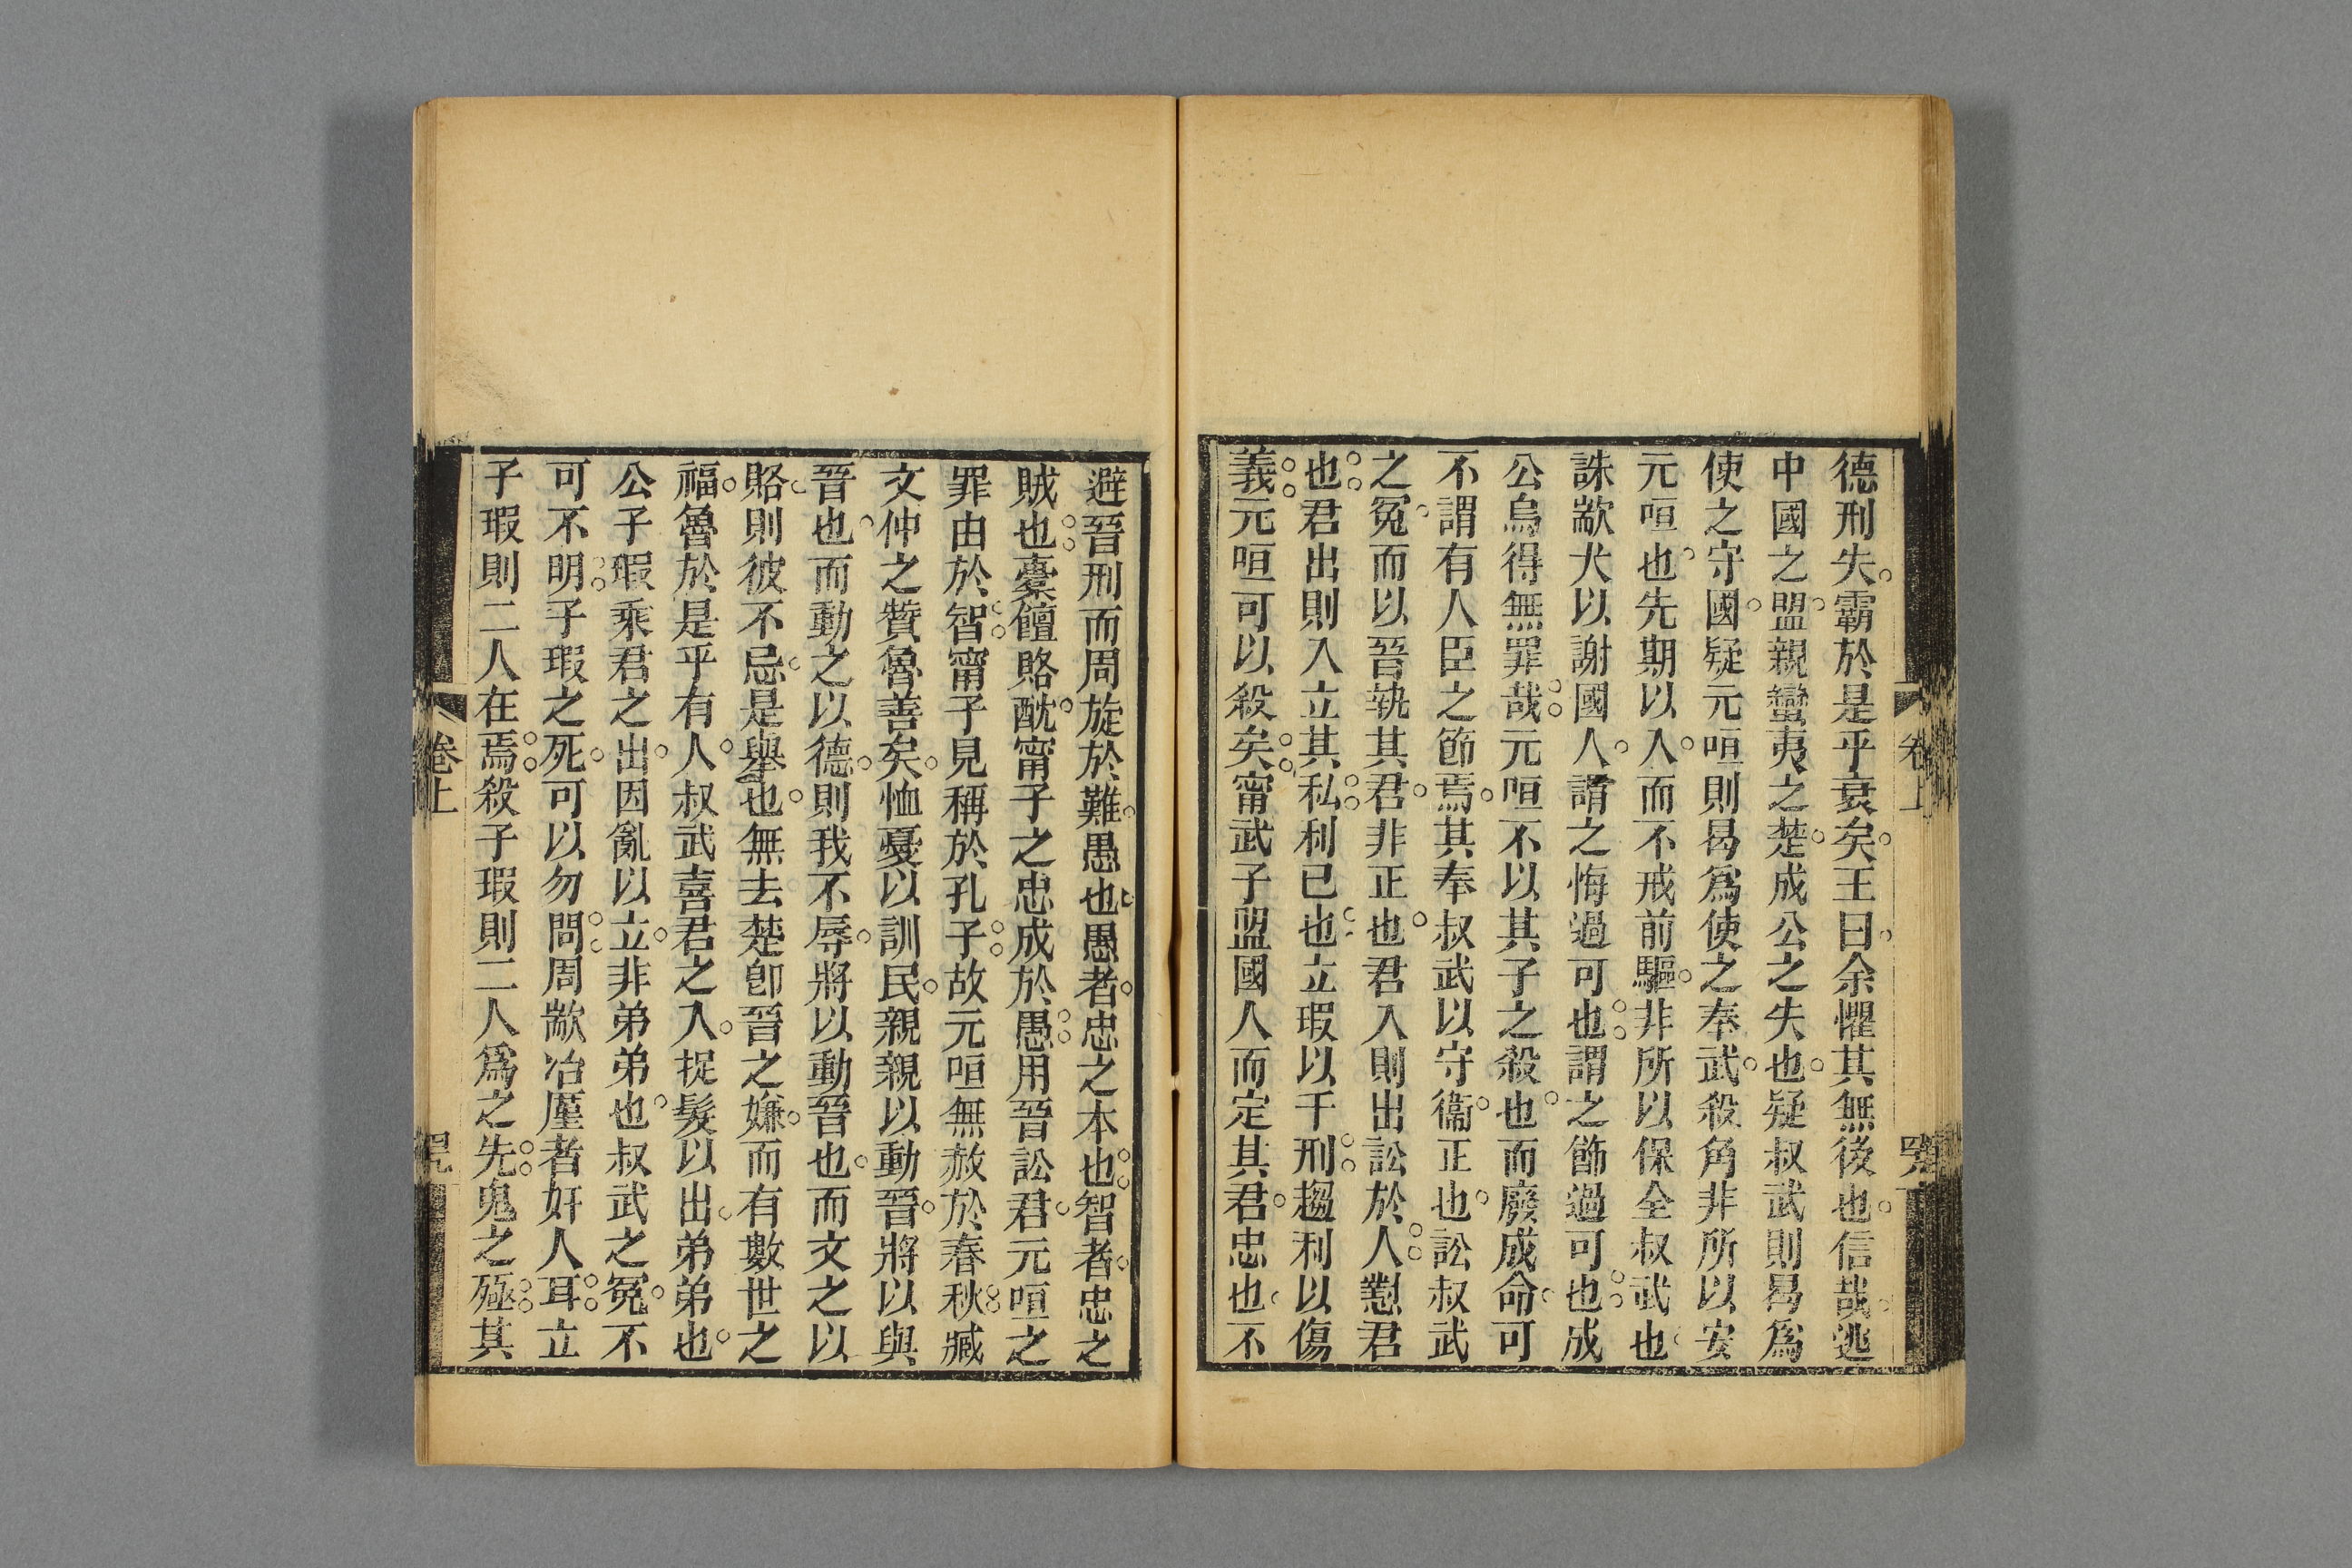 德刑失霸於是乎衰矣王曰余懼其無後也信哉逃
中國之盟親蠻夷之楚成公之失也疑叔武則曷爲
使之守國疑元咺則曷爲使之奉武殺角非所以安
元咺也先期以入而不戒前驅非所以保全叔武也
誅歂犬以謝國人謂之悔過可也謂之飾過可也成
公烏得無罪哉元咺不以其子之殺也而廢成命可
不謂有人臣之節焉其奉叔武以守衞正也訟叔武
之冤而以晉執其君非正也君入則出訟於人懟君
也君出則入立其私利已也立瑕以干刑趨利以傷
義元咺可以殺矣甯武子盟國人而定其君忠也不
避晉刑而周旋於難愚也愚者忠之本也智者忠之
賊也橐饘賂酖甯子之忠成於愚用晉訟君元咺之
罪由於智甯子見稱於孔子故元咺無赦於春秋臧
文仲之贊魯善矣恤憂以訓民親親以動晉將以與
晉也而動之以德則我不辱將以動晉也而文之以
賂則彼不忌是舉也無去楚卽晉之嫌而有數世之
福魯於是乎有人叔武喜君之入捉髮以出弟弟也
公子瑕乘君之出因亂以立非弟弟也叔武之冤不
可不明子瑕之死可以勿問周歂冶廑者奸人耳立
子瑕則二人在焉殺子瑕則二人爲之先鬼之殛其
卷上
卷上